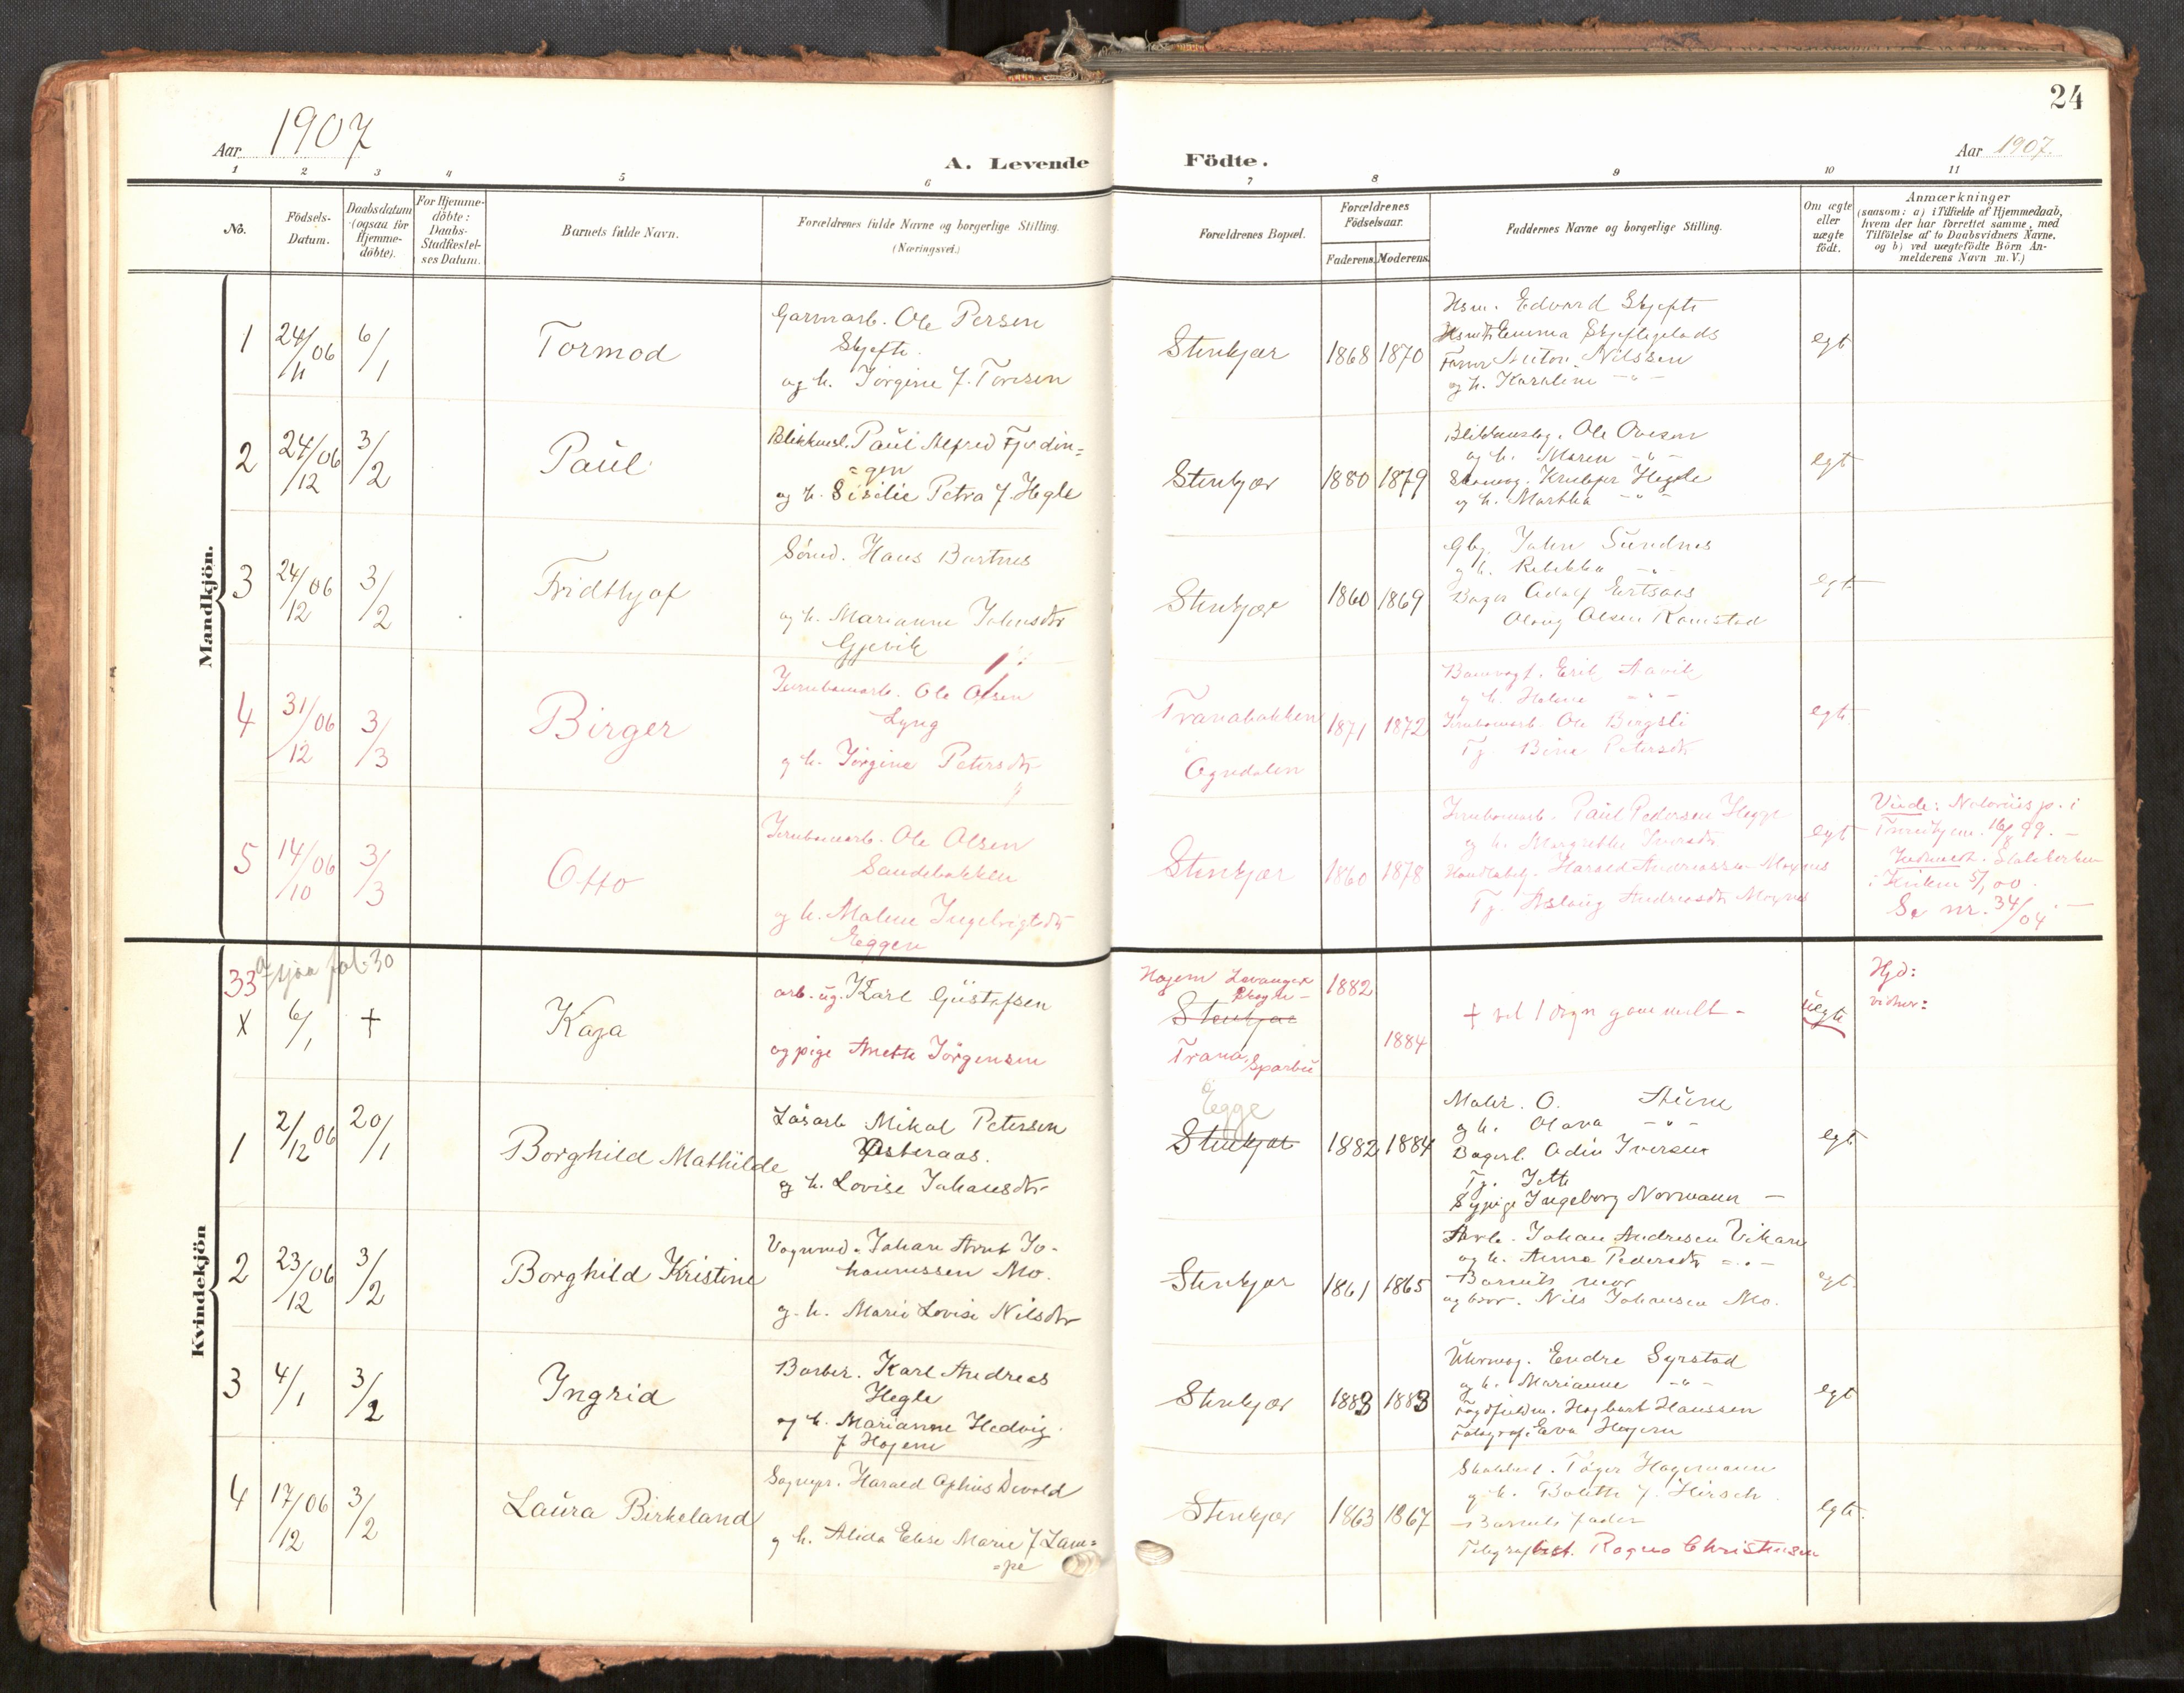 24
Aar 1907
A. Levende Födte.
Aar 1907.
1 2 3 4 5 6 7 8 9 10 11
No.
Födsels-
Datum.
Daabsdatum
(ogsaa for
Hjemme-
döbte).
For Hjemme-
döbte:
Daabs-
Stadfæstel-
ses Datum.
Barnets fulde Navn.
Forældrenes fulde Navne og borgerlige Stilling.
(Næringsvei.)
Forældrenes Bopæl.
Forældrenes
Födselsaar.
Faderens. Moderens.
Faddernes Navne og borgerlige Stilling.
Om ægte
eller
uægte
födt.
Anmærkninger
(saasom: a) i Tilfælde af Hjemmedaab,
hvem der har forrettet samme, med
Tilföielse af to Daabsvidners Navne,
og b) ved uægtefödte Börn An-
melderens Navn m. V.)
Mandkjön.
1 24/11 06 6/1 Tormod
Garmarb. Ole Persen
Skjefte.
og h. Jörgine f. Toresen
Stenkjær 1868 1870
Hsm. Edvard Skjefte
Emma
Anton Nilssen
og h. Karoline -"-
egt
2 24/12 06 3/2 Paul
Blikkensl. Paul Alfred Fjodin=
=gen
og h. Sisilie Petra f. Hegle
Stenkjær 1880 1879
Ole Ovesen
og h. Maren -"-
Hegle
og h. Martha -"-
egt
3 24/12 06 3/2 Fridthjof
Hans Bartnes
og h. Marianne Johnsdtr
Gjevik
Stenkjær 1860 1869
Gbr. John Sundnes
og h. Rebekka -"-
Bager Adolf Ertsaas
Olaug Olsen Ramstad
egt
4 31/12 06 3/3 Birger
Jernbanearb. Ole Olsen
Lyng
og h. Jörgine Petersdtr
Tranabakken
Ognedalen
1871 1872
Banevogt. Erik Aavik
og h. Helene -"-
Jernbanearb. Ole Bergsli
Tj. Bine Petersdtr
egt.
5 14/10 06 3/3 Otto
Jernbanearb. Ole Olsen
Sandebakken
og h. Malene Ingebrigtsdtr
Eggen
Stenkjær 1860 1878
Jernbanearb. Paul Pedersen Hegge
og h. Margrethe
Harald Andreassen Moxnes
Tj. Aslaug Andreasdtr Moxnes
egt
Viede: Notorius p. i
Trondhjem 16/8 99. -
i Kirken 5/1 00.
Se nr. 34/04
Kvindekjön
33a fol. 30
x 6/1 † Kaja
arb. ug. Karl Gustafsen
og pige Anette Jörgensen
Hojem Levanger
Skogn -
Stenkjær
Trana, Sparbu
1882
1884
† vel 1 dögn gammelt -
uegte
Hjd:
vidner:
1 2/12 06 20/1 Borghild Mathilde
Mikal Petersen
Østeraas.
og h. Lovise Johansdtr
Egge
Stenkjær
1882 1884
Maler. O. Aune
og h. Olava -"-
Bagersl. Odin Iversen
Tj. Jette
Sypige Ingeborg Normann -
egt
2 23/12 06 3/2 Borghild Kristine
Vognmd. Johan Arnt Jo-
hannessen Mo.
og h. Marie Lovise Nilsdtr
Stenkjær 1861 1865
Arb. Johan Andresen Vikan
og h. Anna Pedersdtr -"-
Barnets mor
og bror. Nils Johansen Mo.
egt.
3 4/1 3/2 Ingrid
Barber. Karl Andreas
Hegle
og h. Marianne Hedvig
f Hojem
Stenkjær 1883 1883
Uhrmag. Endre Syrstad
og h. Marianne -"-
Hagbart Hanssen
Fotograf. Eva Hojem
egt
4 17/12 06 3/2 Laura Birkeland
Sognepr. Harald Ophus Devold
og h. Alida Elise Marie f Lam=
=pe
Stenkjær 1863 1867
Hagemann
og h. Bolette f. Hirsch
Barnets fader
Telegrafbest. Ragna Christensen
egte.